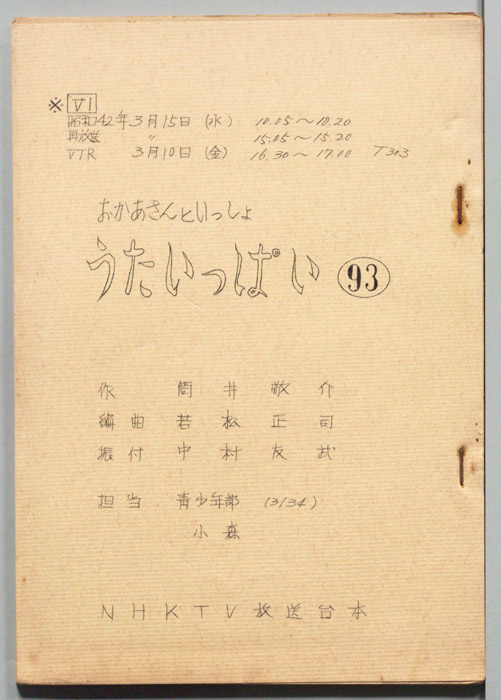 ※ VI
昭和42年3月15日(水) 10.05〜10.20
再放送 〃 15.05〜15.20
VTR 3月10日(金) 16.30〜17.00 T303
おかあさんといっしょ
うたいっぱい 93
作 筒井敬介
編曲 若松正司
振付 中村友武
担当 青少年部 (3134)
小森
NHKTV放送台本